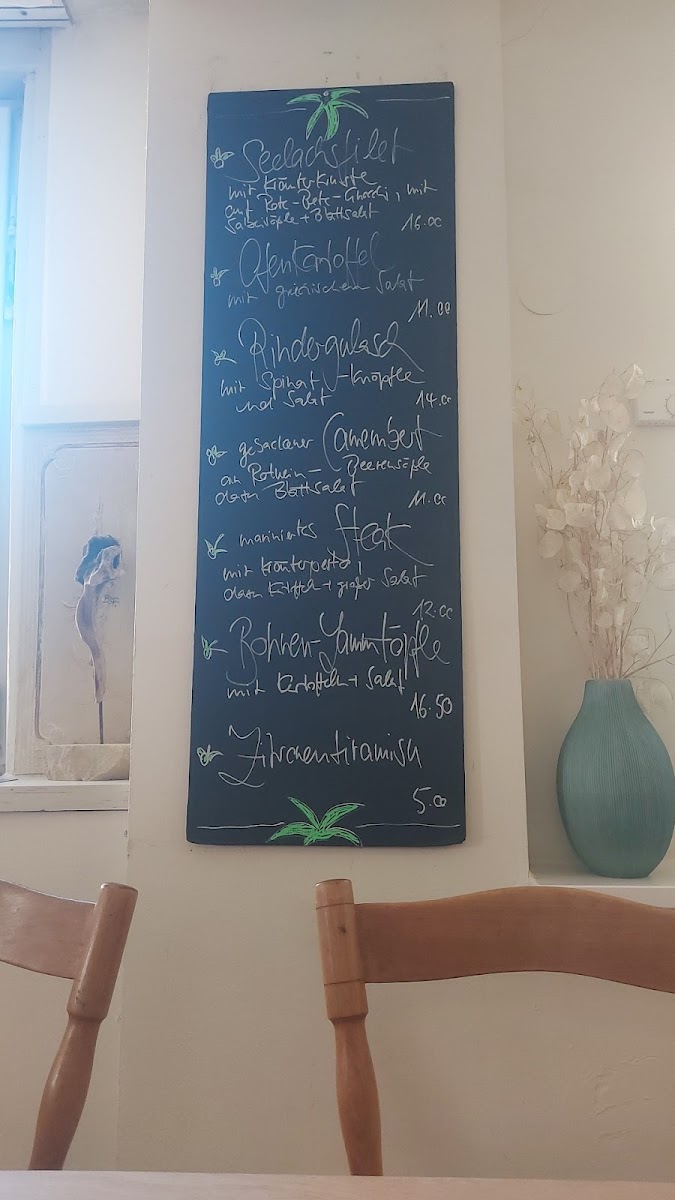 Seelachsfilet
mit Kräuterkruste
auf Rote-Bete-Gnocchi, mit
+ Blattsalat
16.00
Ofenkartoffel
mit griechischem Salat
11.00
Rindergulasch
mit Spinat-Knöpfle
und Salat
14.00
gebackener Camembert
an Rotwein-Beerensoße
dazu Blattsalat
11.00
mariniertes Steak
mit Kräuterpesto,
dazu + großer Salat
12.00
Bohnen-Lammtöpfle
mit Kartoffeln + Salat
16.50
Zitronentiramisu
5.00